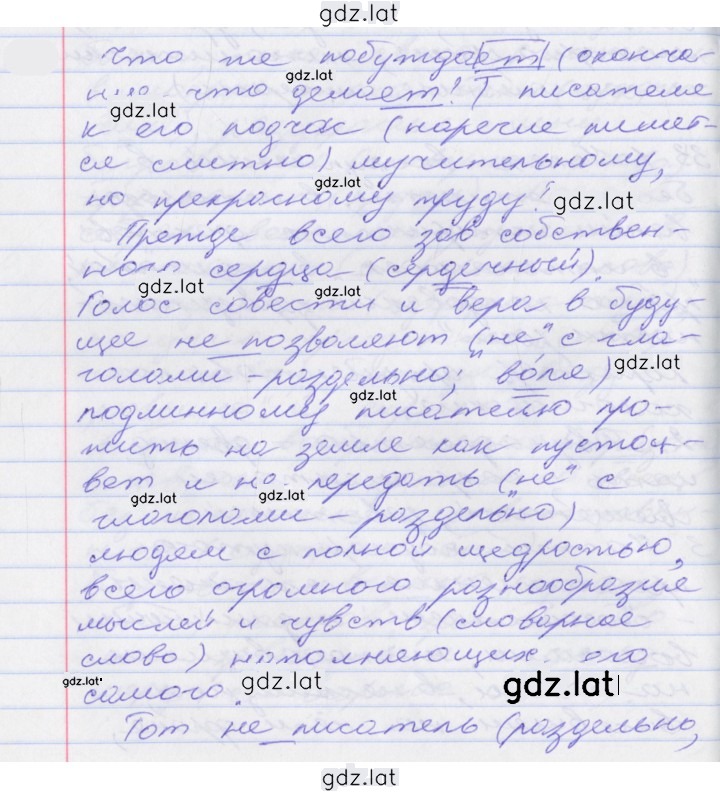 gdz.lat
Что же побуждает (оконча-
gdz.lat
ние что делает! Т писателя
gdz.lat
к его подчас (наречие пишет-
ся слитно) мучительному,
gdz.lat
но прекрасному труду?
gdz.lat
Прежде всего зов собствен-
ного сердца (сердечный).
gdz.lat
gdz.lat
Голос совести и вера в буду-
щее не позволяют ("не" с гла-
gdz.lat
голами - раздельно; воля)
gdz.lat
подлинному писателю про-
жить на земле как пустоц-
вет и не передать ("не" с
gdz.lat
gdz.lat
глаголами - раздельно)
людям с полной щедростью,
всего огромного разнообразия
мыслей и чувств (словарное
слово) наполняющих его
gdz.lat
gdz.lat
gdz.lat
самого.
Тот не писатель (раздельно,
gdz.lat